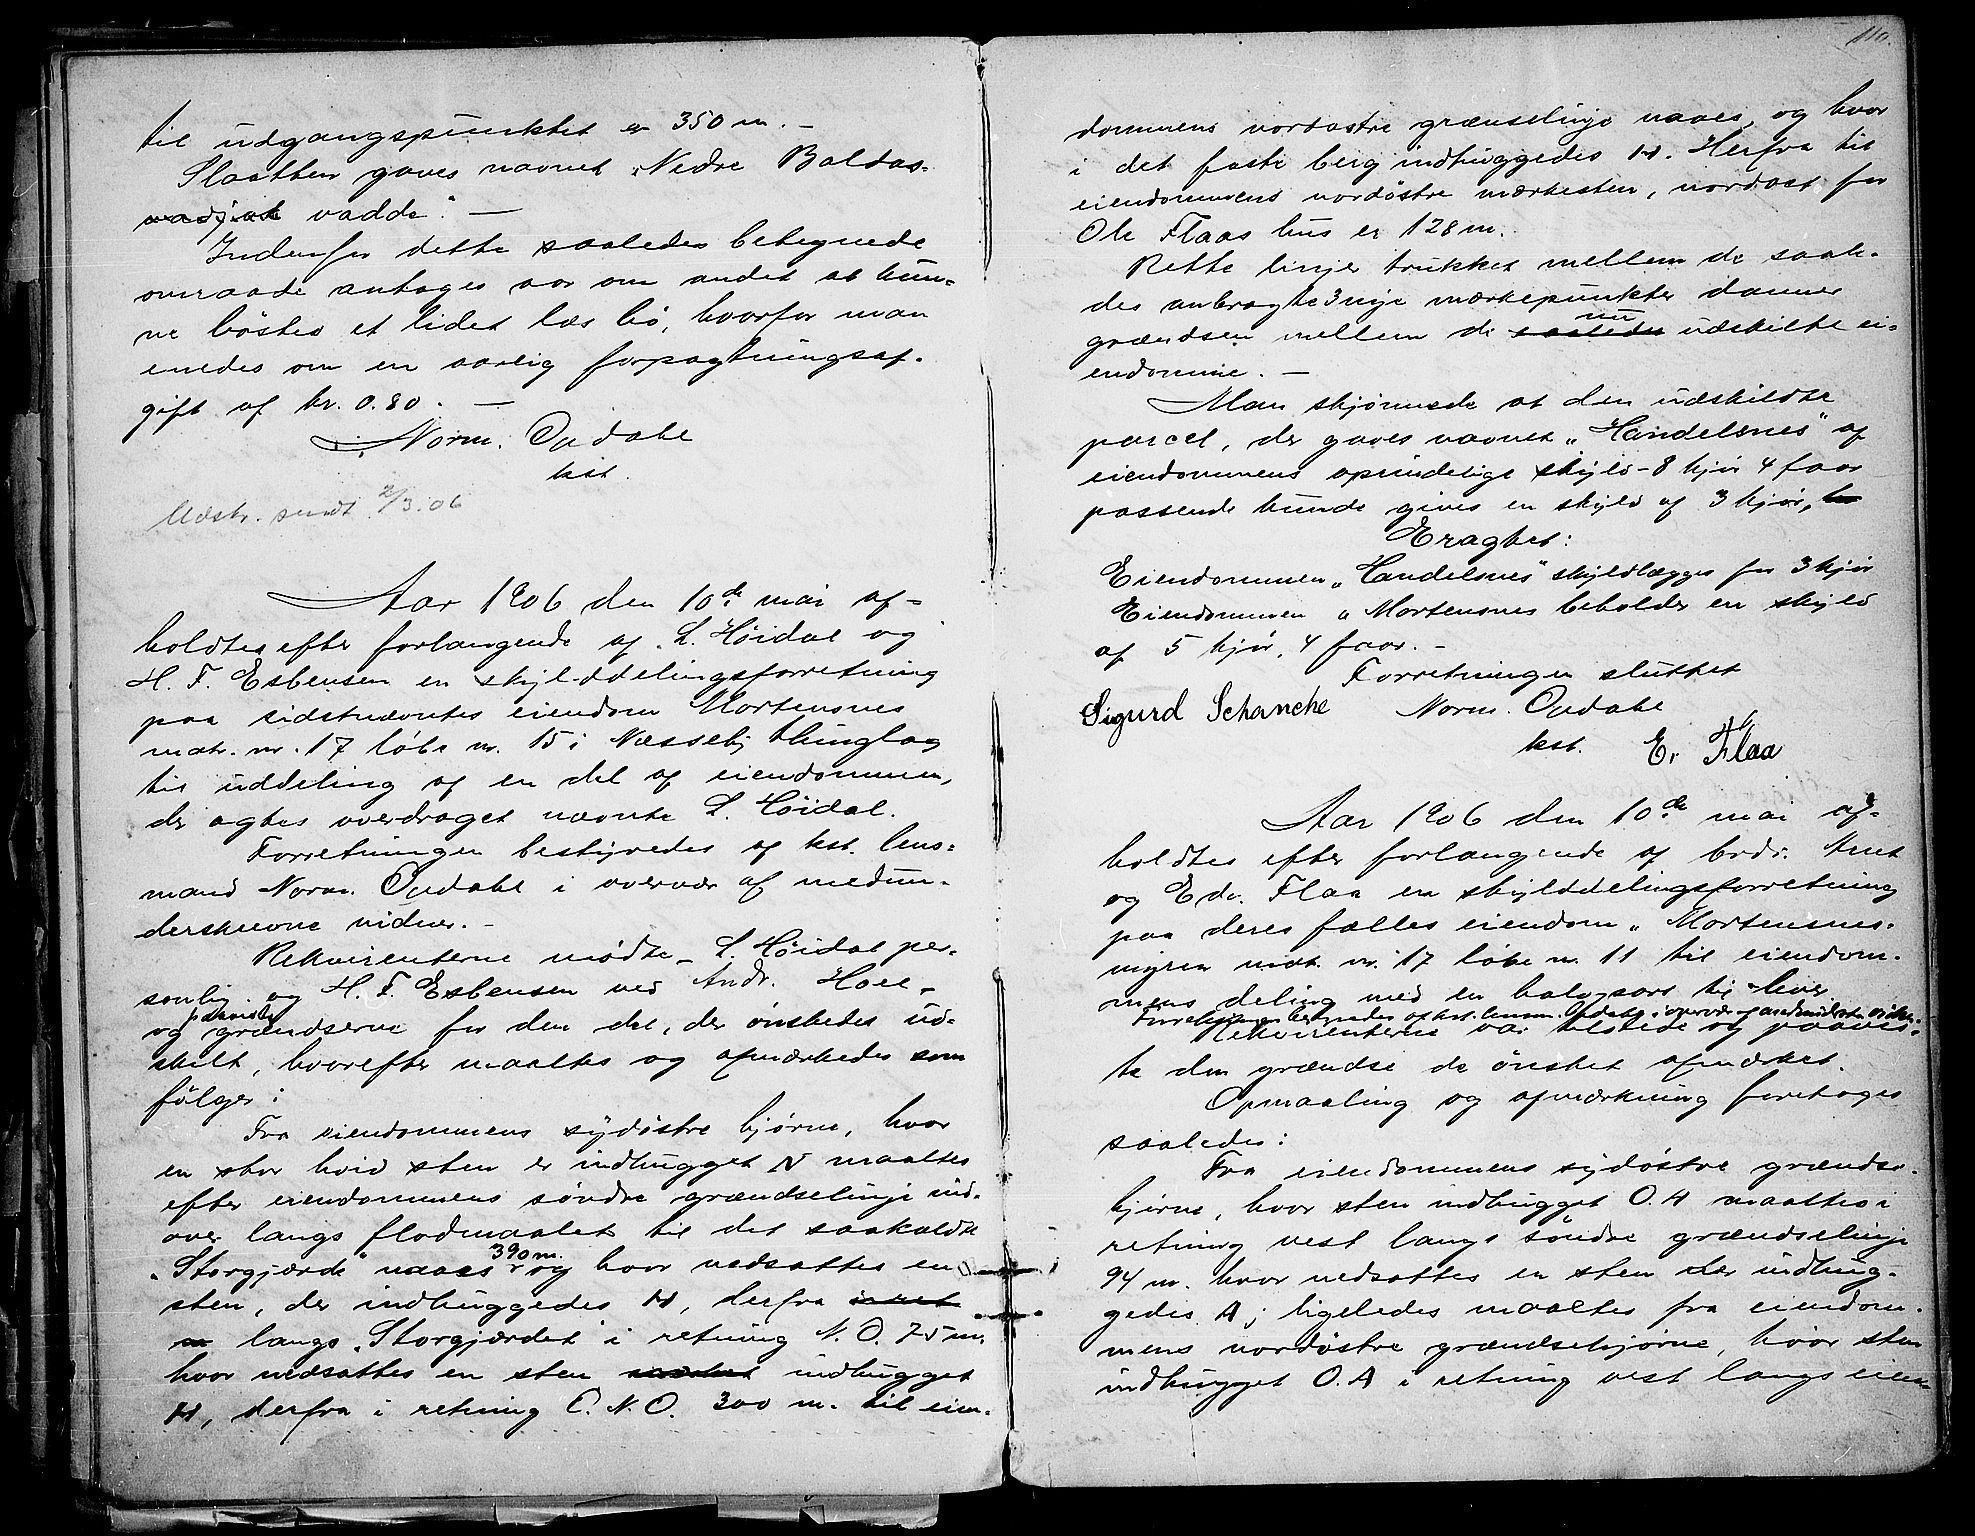 til udgangspunktet er 350 m. –
Slaatten gaves navnet „Nedre Baldas-
vadjok vadde". –
Indenfor dette saaledes betegnede
omraade antages aar om andet at kun-
ne høstes et lidet læs hø, hvorfor man
enedes om en aarlig forpagtningsaf-
gift af kr. 0.80. –
Norm. Opdahl
kst.
Udskr. sendt 2/3.06
Aar 1906 den 10de mai af-
holdtes efter forlangende af L. Høidal og
H. F. Esbensen en skylddelingsforretning
paa sidstnævntes eiendom Mortensnes
matr. nr. 17 løbe nr. 15 i Næsseby thinglag
til uddeling af en del af eiendommen,
der agtes overdraget nævnte L. Høidal.
Forretningen bestyredes af kst. lens-
mand Norm. Opdahl i overvær af medun-
derskrevne vidner. –
Rekvirenterne mødte – L. Høidal per-
sonlig og H. F. Esbensen ved Andr. Hoel –
paaviste
og grændserne for den del, der ønskedes ud-
skilt, hvorefter maaltes og afmærkedes som
følger:
Fra eiendommens sydøstre hjørne, hvor
en stor hvid sten er indhugget N maaltes
efter eiendommens søndre grændselinje ind-
over langs flodmaalet til det saakaldte
390 m.
„Storgjærde" naaes og hvor nedsattes en
sten, der indhuggedes H, derfra
langs „Storgjærdet" i retning N. O. 75 m.
hvor nedsattes en sten indhugget
H, derfra i retning O. N. O. 300 m. til eien-
110.
dommens nordøstre grænselinje naaes, og hvor
i det faste berg indhuggedes H. Herfra til
eiendommens nordøstre mærkesten, nordost for
Ole Flaas hus er 128 m.
Rette linjer trukket mellem de saale-
des anbragte 3 nye mærkepunkter danner
nu
grændsen mellem de saaledes udskilte ei-
endomme. –
Man skjønnede at den udskildte
parcel, der gaves navnet „Handelsnes" af
eiendommens oprindelige skyld – 8 kjør 4 faar
passende kunde gives en skyld af 3 kjør,
Eragtet:
Eiendommen „Handelsnes" skyldlægges for 3 kjør
Eiendommen „Mortensnes beholder en skyld
af 5 kjør, 4 faar. –
Forretningen sluttet
Sigurd Schanche Norm. Opdahl
kst. E. Flaa
Aar 1906 den 10de mai af-
holdtes efter forlangende af brdr. Amt
og Edv. Flaa en skylddelingsforretning
paa deres fælles eiendom „Mortensnes-
myren matr. nr. 17 løbe nr. 11 til eiendom-
mens deling med en halvpart til hver
Forretningen bestyredes af kst. lensm. Opdahl i overvær af medunderskr. vidner.
Rekvirenterne var tilstede og paavis-
te den grændse de ønsket afmærket.
Opmaaling og afmærkning foretoges
saaledes:
Fra eiendommens sydøstre grændse-
hjørne, hvor sten indhugget O. H maaltes i
retning vest langs søndre grændselinje
94 m. hvor nedsattes en sten der indhug-
gedes A; ligeledes maaltes fra eiendom-
mens nordøstre grændsehjørne, hvor sten
indhugget O. A i retning vest langs eien-